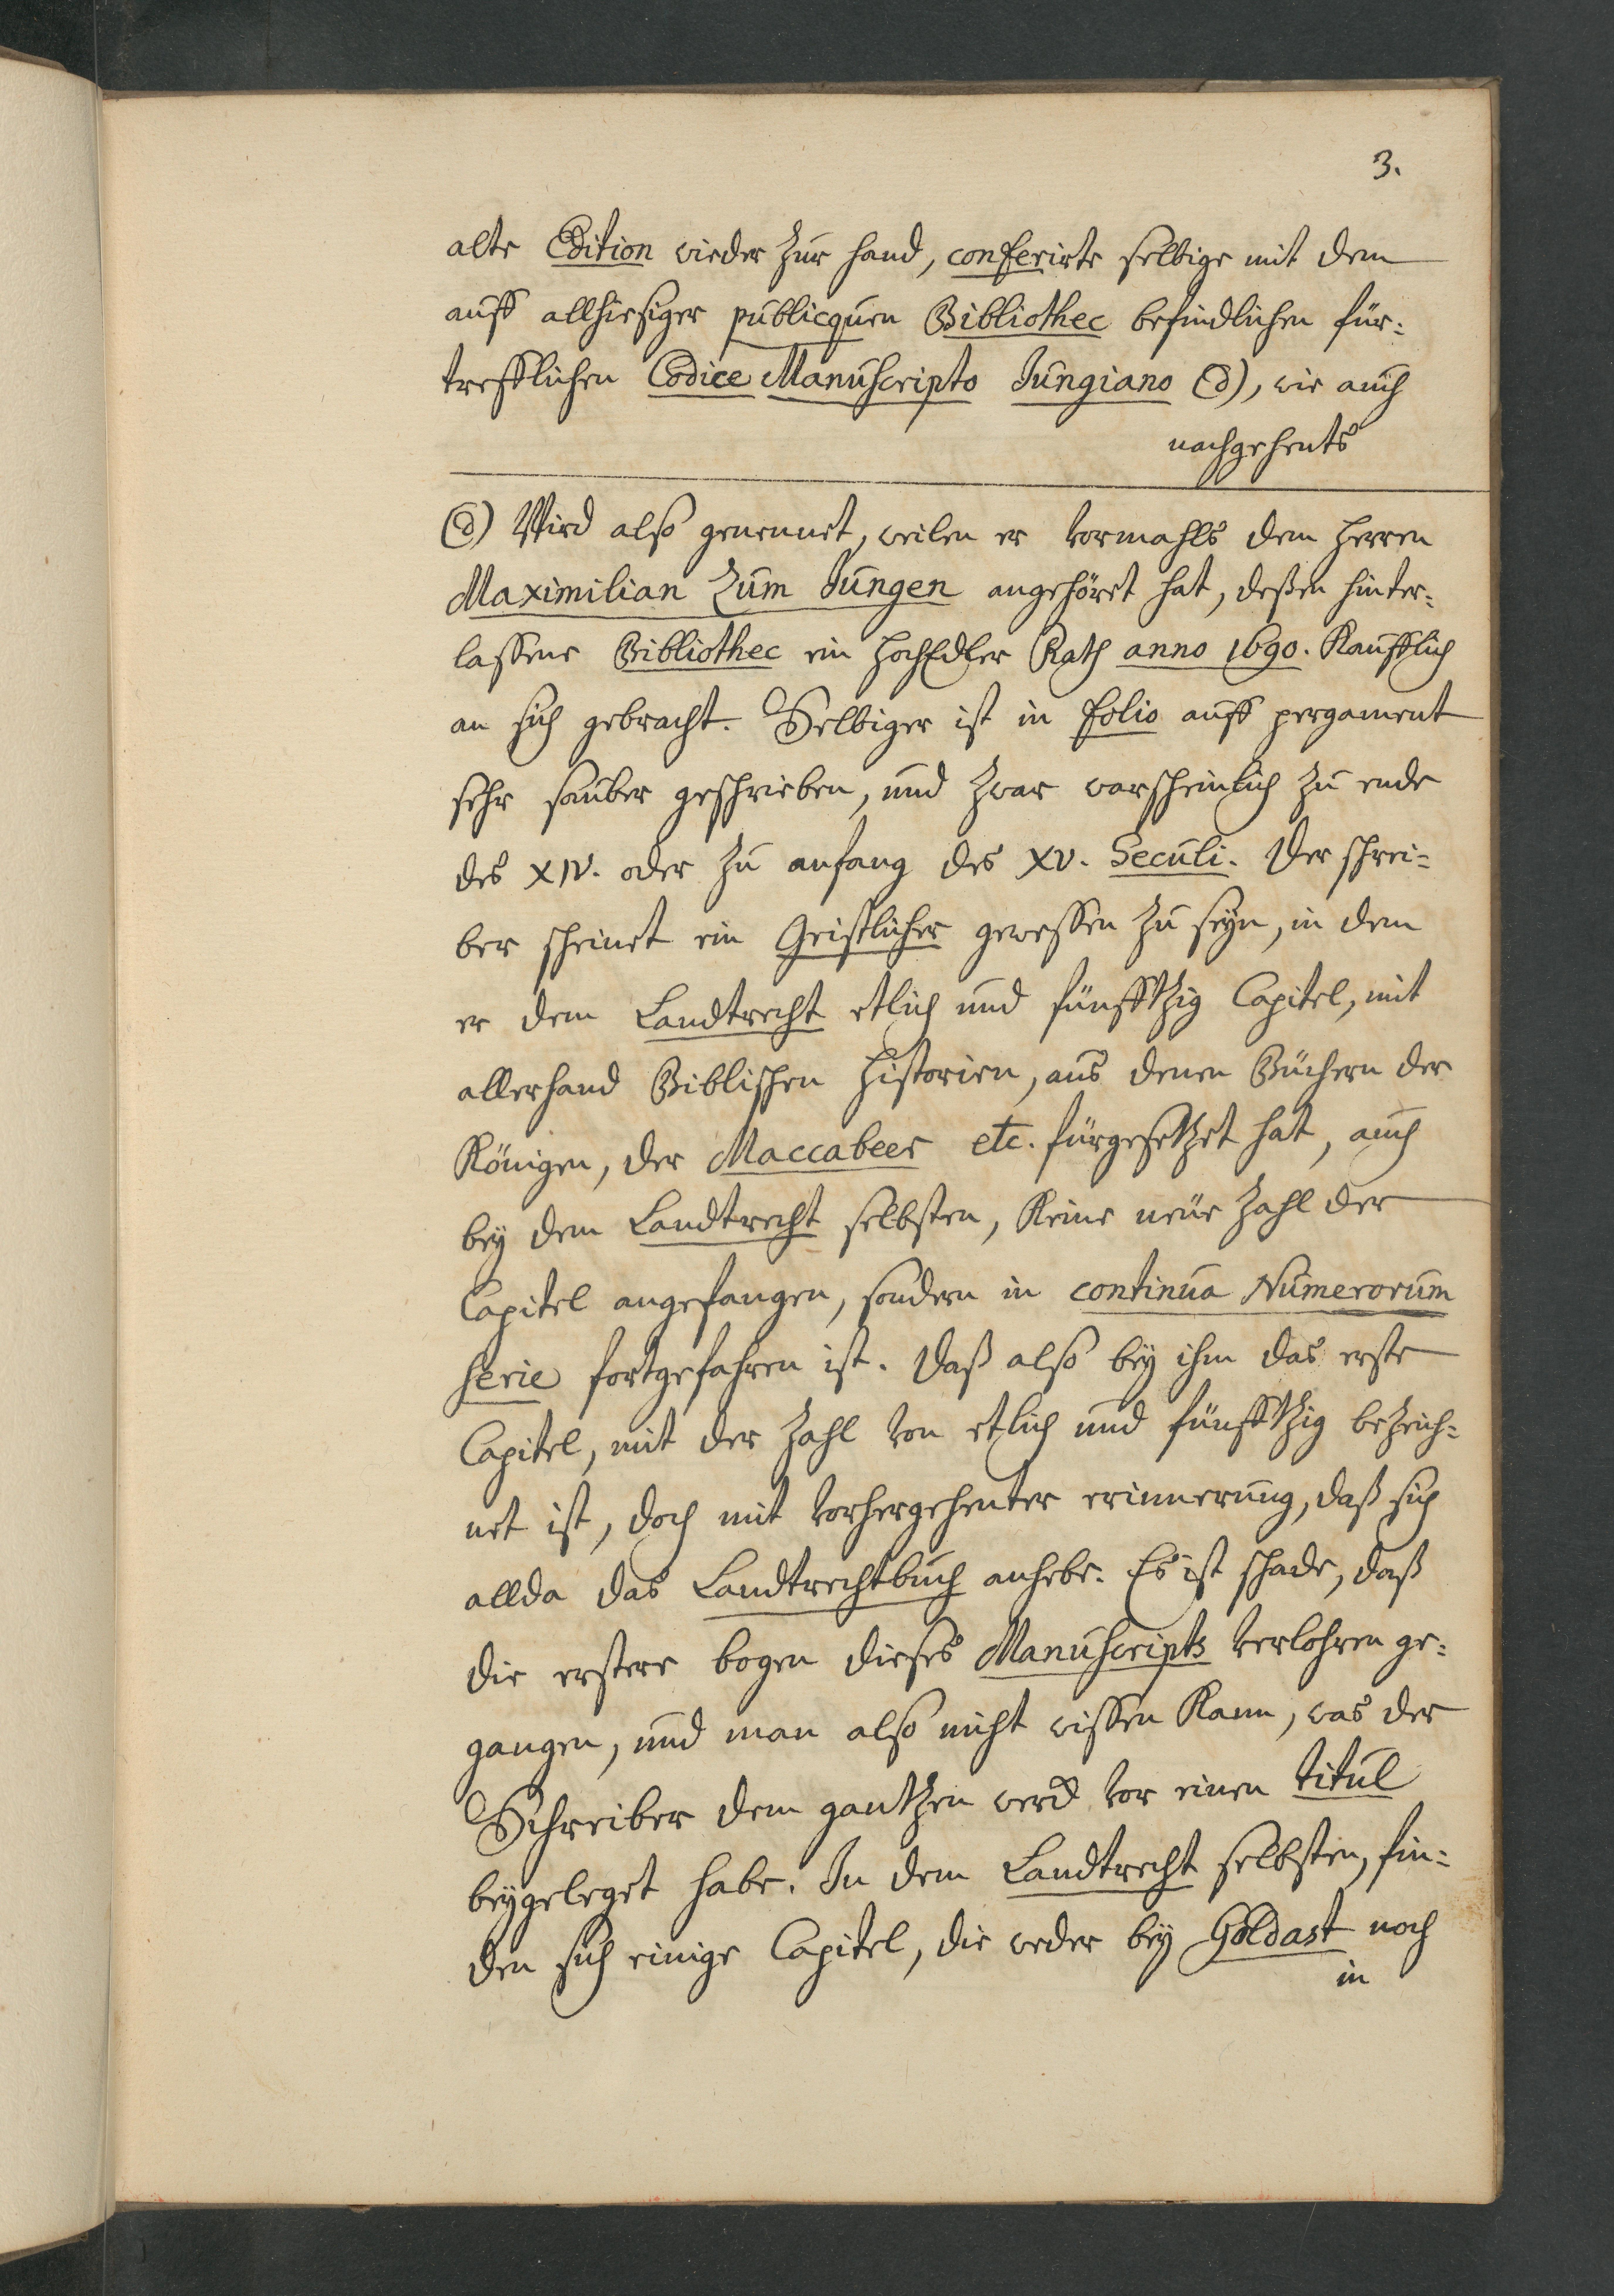 3.
alte Edition wieder zur hand, conferirte selbige mit dem
auff allhiesiger publicquen Bibliothec befindlichen für=
trefflichen Codice Manuscripto Jungiano (d), wie auch
nachgehents
(d) Wird also genennet, weilen er vormahls dem Herren
Maximilian Zum Jungen angehöret hat, deßen hinter=
lassene Bibliothec ein HochEdler Rath anno 1690. Kaufflich
an sich gebracht. Selbiger ist in folio auff pergament
sehr sauber geschrieben, und zwar warscheinlich zu ende
des XIV. oder zu anfang des XV. Seculi. Der schrei=
ber scheinet ein Geistlicher gewessen zu seyn, in dem
er dem Landtrecht etlich und fünfftzig Capitel, mit
allerhand Biblischen Historien, aus denen Büchern der
Königen, der Maccabeer etc. fürgesetzet hat, auch
bey dem Landtrecht selbsten, Keine neue Zahl der
Capitel angefangen, sondern in continua Numerorum
serie fortgefahren ist. Daß also bey ihm das erste
Capitel, mit der Zahl von etlich und fünfftzig bezeich=
net ist, doch mit vorhergehenter erinnerung, daß sich
allda das Landtrechtbuch anhebe. Es ist schade, daß
die erstere bogen dieses Manuscripts verlohren ge=
gangen, und man also nicht wissen Kann, was der
Schreiber dem gantzen werck vor einen titul
beygeleget habe. In dem Landtrecht selbsten, fin=
den sich einige Capitel, die weder bey Goldast noch
in